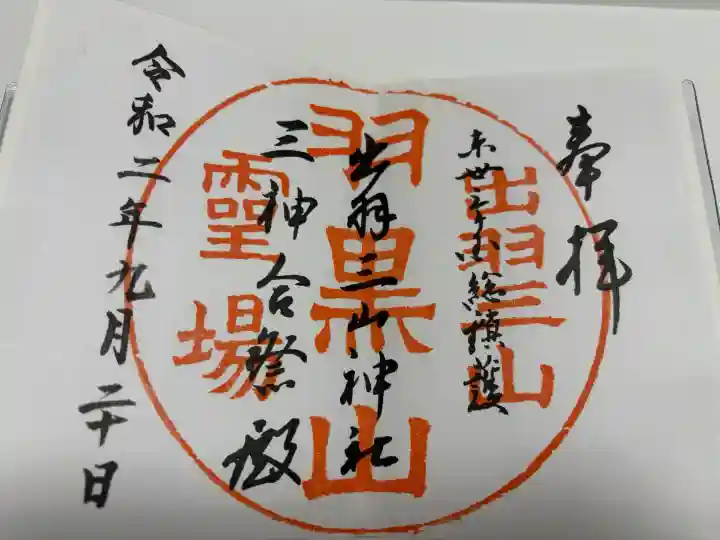 奉拝
東丗三ヶ国総鎮護
出羽三山神社
三神合祭殿
令和二年九月二十日
出羽三山
羽黒山
霊場